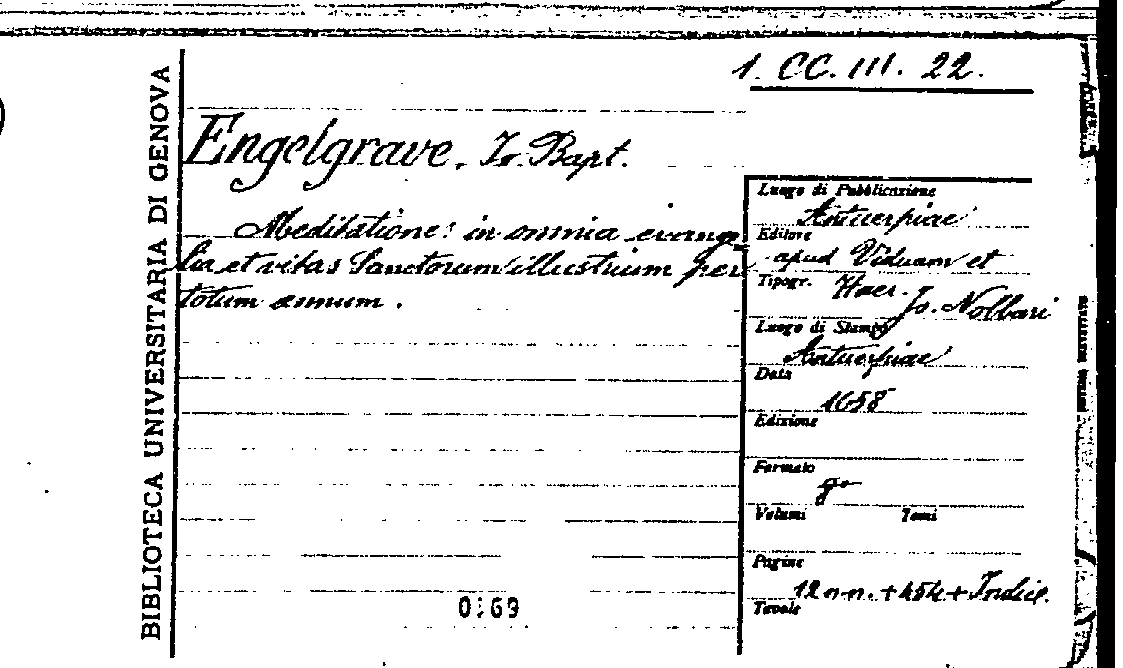 1. CC. III. 22.
BIBLIOTECA UNIVERSITARIA DI GENOVA
Engelgrave, Io. Bapt.
Meditationes in omnia evange
lia et vitas Sanctorum illustrium per
totum annum.
Luogo di Pubblicazione
Antuerpiae
Editore
apud Viduam et
Tipogr. Haer. Jo. Nolbari
Luogo di Stampa
Antuerpiae
Data
1658
Edizione
Formato
Volumi Tomi
Pagine
12 nn. + 454 + Indic.
Tavole
0:69